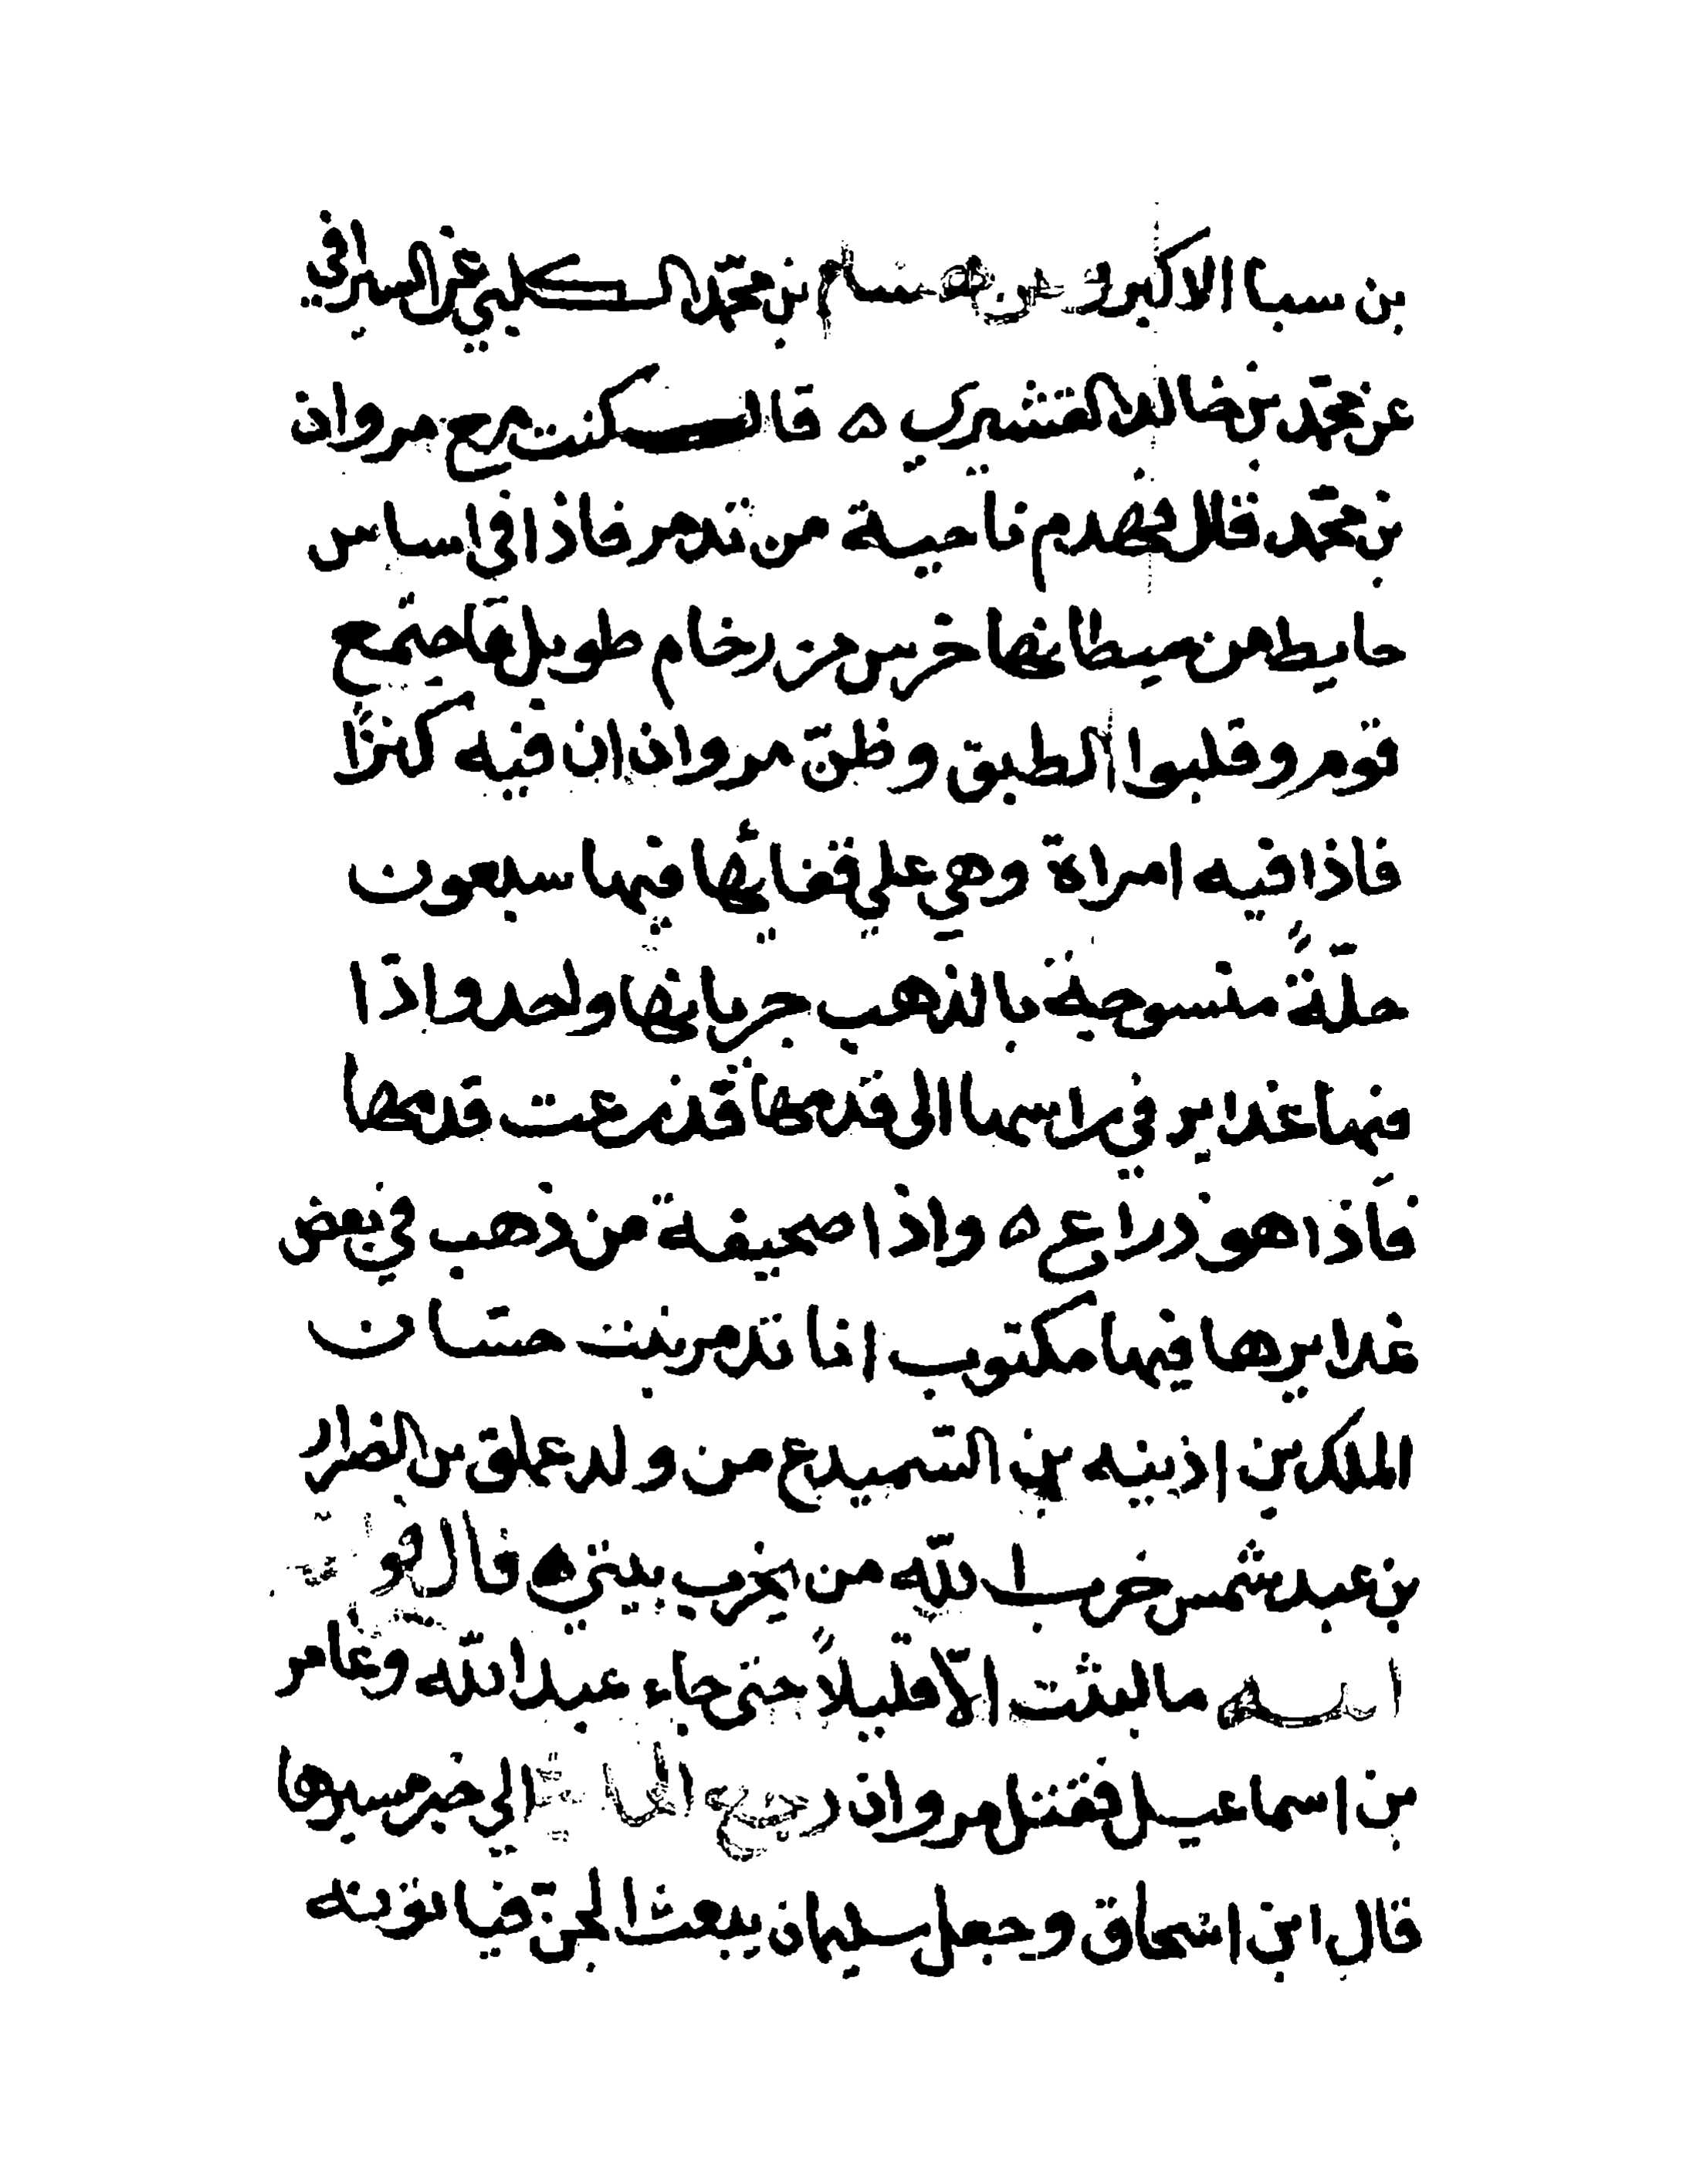 بن سبا الاكبر وعن هشام ابن محمّد الكلبي عن السرافي
عن محمّد بن خالد القشيري ه قال كنت مع مروان
بن محمّد فلما هدم ناحية من تدمر فاذا في اساس
حايط من حيطانها خرس من رخام طويل فاجتمع
قوم وقلبوا الطبق وظنّ مروان ان فيه كنزًا
فاذا فيه امراة وهي علي قفائها فيها سبعون
حلّةً منسوجة بالذهب جربانها واحد واذا
فيها غداير في راسها الى قدمها قد ذرعت قدمها
فاذا هو ذراع ه واذا صحيفة من ذهب في بعض
غدايرها فيها مكتوب انا تدمر بنت حسّان
الملك بن اذينه بن السّميدع من ولد عملق بن الضرار
بن عبد شمس خرب الله من يخرب بيتي ه قال فو
الله ما لبثت الّا قليلاً حتى جاء عبد الله وعامر
بن اسماعيل فقتل مروان رجع الي خبر مسيرها
قال ابن اسحاق وجعل سليمان يبعث الجنّ فياتونه